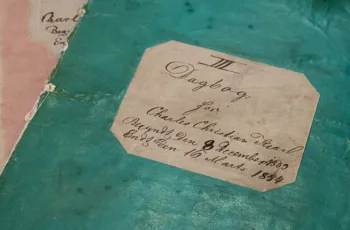 Charl
III
Dagbog
for
Charles Christian
Begyndt den 8 December 1883
Endt den 16 Marts 1884